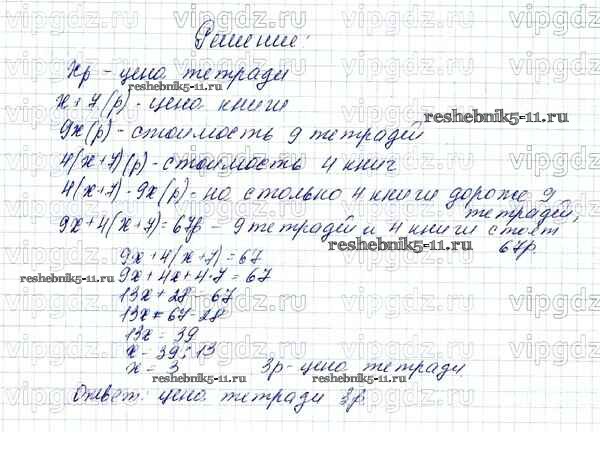 Решение:
Хр - цена тетради
х+7(р) - цена книги
9х(р) - стоимость 9 тетрадей
4(х+7)(р) - стоимость 4 книг
4(х+7)-9х(р) - на столько 4 книги дороже 9
тетрадей,
9х+4(х+7)=67р - 9 тетрадей и 4 книги стоят
67р.
9х+4(х+7)=67
9х+4х+4·7=67
13х+28=67
13х=67-28
13х=39
х=39:13
х=3 3р-цена тетради
Ответ: цена тетради 3р
vipgdz.ru
reshebnik5-11.ru